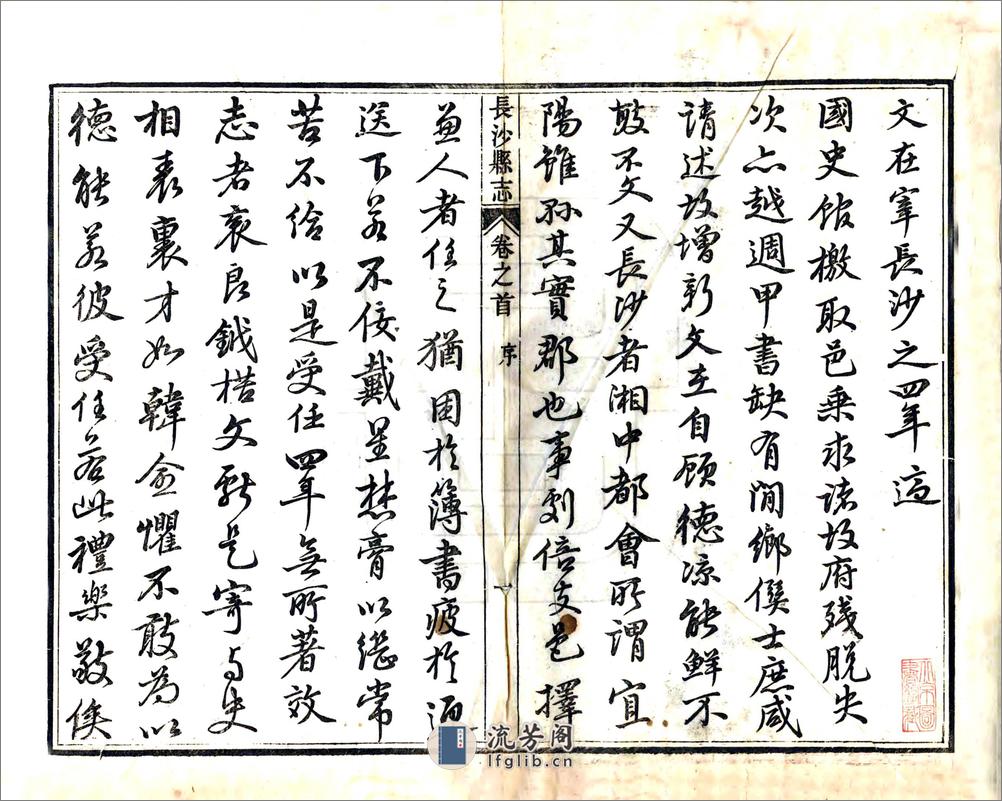 文在宰長沙之四年適
國史館檄取邑乘求諸故府殘脫失
次亦越週甲書缺有間鄉僎士庶咸
請述故增新文在自顧德凉能鮮不
敢不文又長沙者湘中都會所謂宜
陽雖孫其實郡也事劇倍支邑擇
長沙縣志
卷之首
序
一
兼人者任之猶困於簿書疲於迎
送下若不佞戴星焚膏以繼常
苦不給以是受任四年無所著效
志者衷良鉞楛文獻是寄与史
相表裏才如韓愈懼不敢為以
德能若彼受任若此禮樂敬俟
流芳阁
lfglib.cn